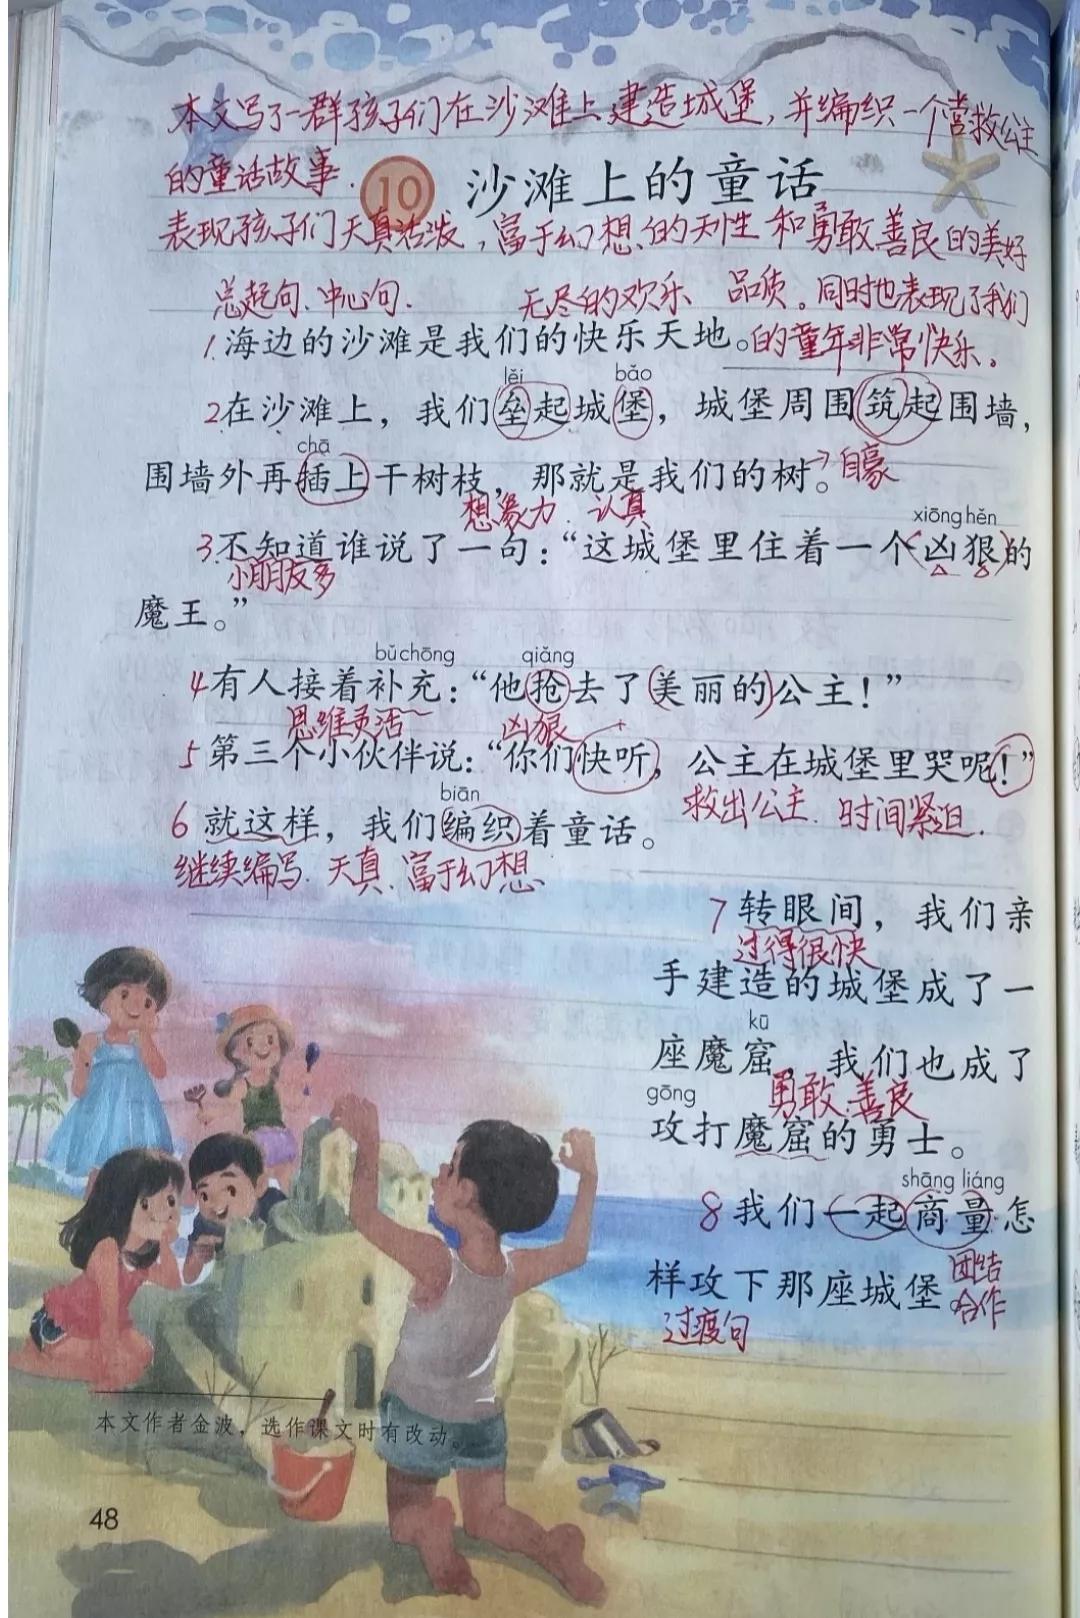 本文写了一群孩子们在沙滩上建造城堡，并编织一个营救公主
的童话故事．
10 沙滩上的童话
表现孩子们天真活泼，富于幻想的天性和勇敢善良的美好
总起句、中心句．　无尽的欢乐　品质。同时也表现了我们
1.海边的沙滩是我们的快乐天地。的童年非常快乐。
lěi bǎo
2在沙滩上，我们垒起城堡，城堡周围筑起围墙，
chā
围墙外再插上干树枝，那就是我们的树。自豪
想象力．认真
xiōng hěn
3.不知道谁说了一句：“这城堡里住着一个凶狠的
小朋友多
魔王。”
bǔ chōng qiǎng
4有人接着补充：“他抢去了美丽的公主！”
思维灵活　凶狠
5第三个小伙伴说：“你们快听，公主在城堡里哭呢！”
救出公主．时间紧迫．
biān
6就这样，我们编织着童话。
继续编写．天真．富于幻想．
7转眼间，我们亲
过得很快
手建造的城堡成了一
kū
座魔窟，我们也成了
勇敢．善良
gōng
攻打魔窟的勇士。
shāng liáng
8我们一起商量怎
样攻下那座城堡
团结
合作
过渡句
本文作者金波，选作课文时有改动。
48